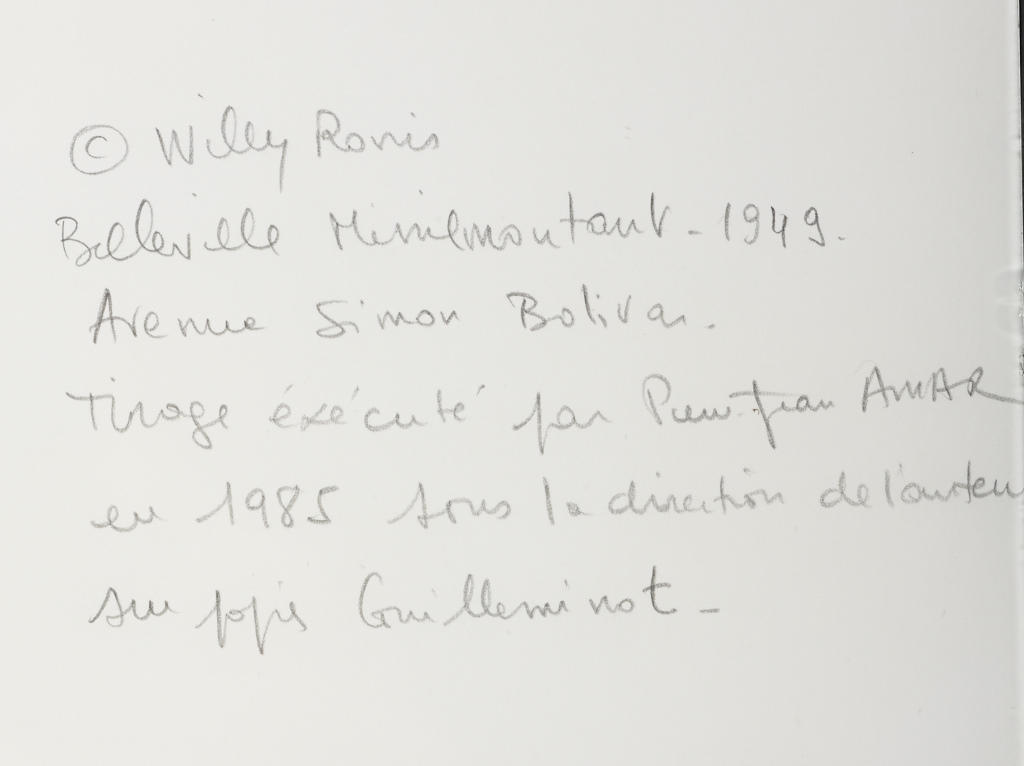 © Willy Ronis
Belleville Ménilmontant - 1949.
Avenue Simon Bolivar.
Tirage éxécuté par Pierre-Jean AMAR
en 1985 sous la direction de l'auteur
sur papier Guilleminot -